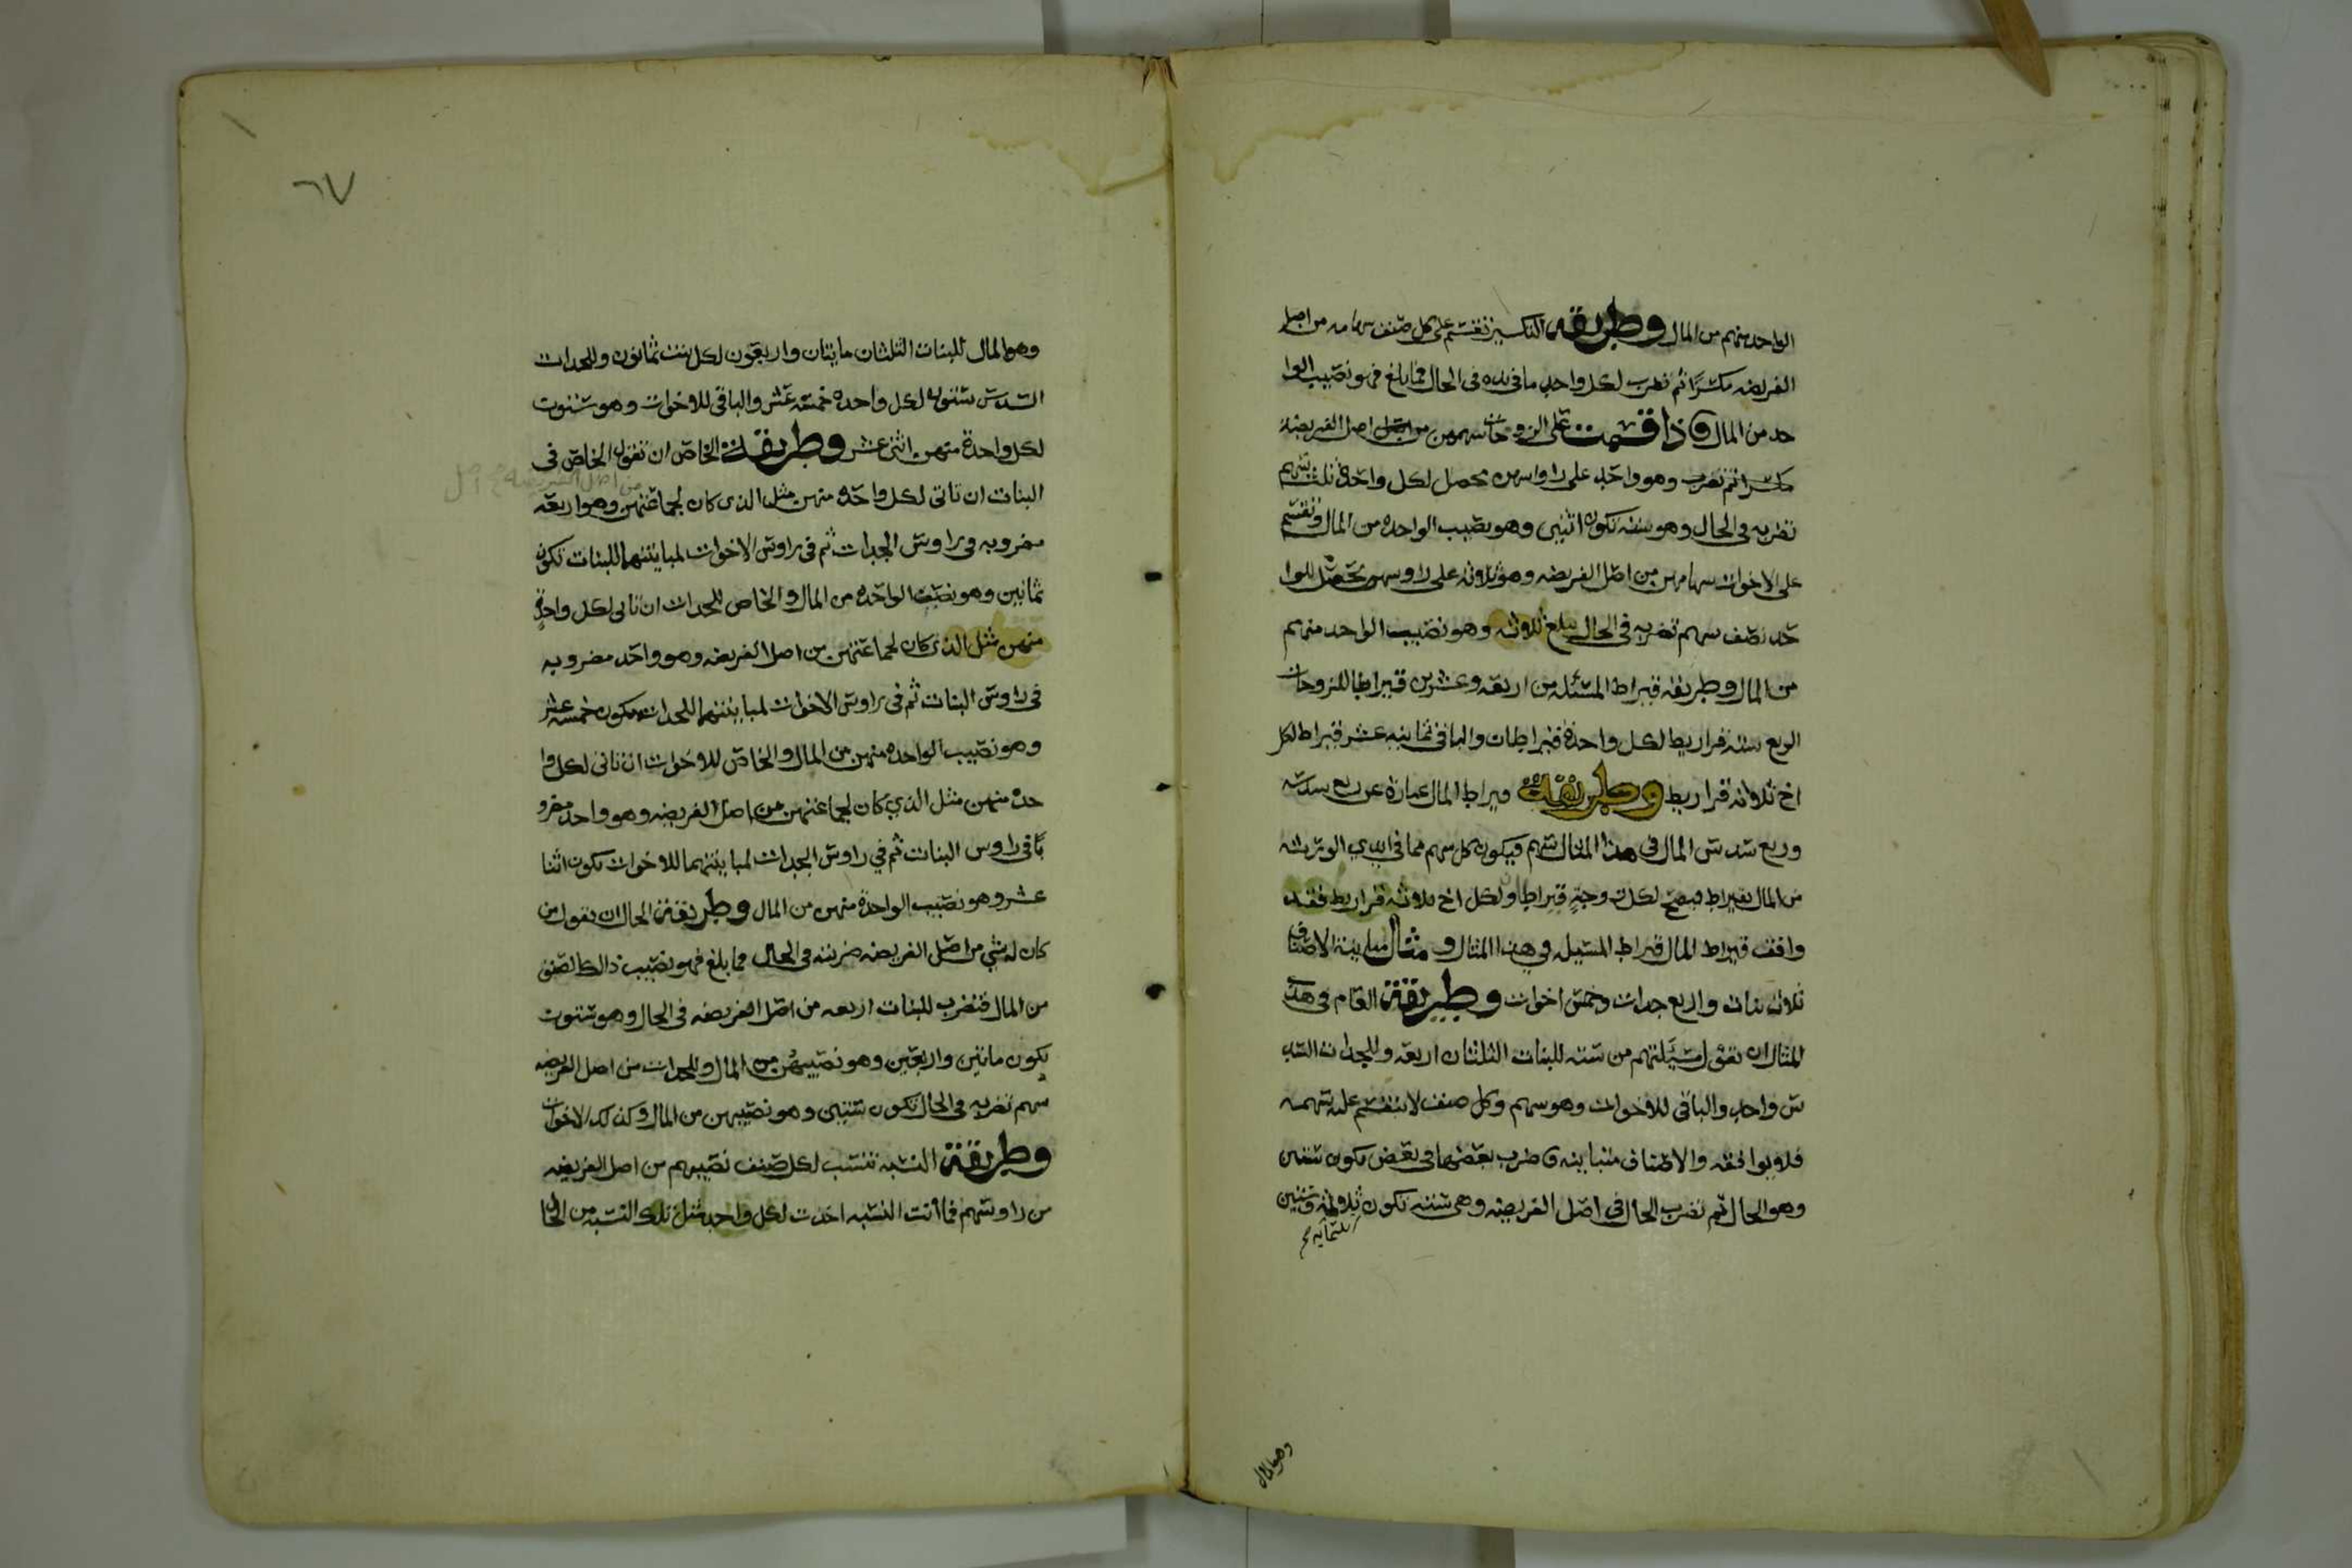 الواحد منهم من المال وطريقه التكسير تقسم على كل صنف سهامه من اصل
الفريضه مكسرًا ثم تضرب لكل واحد ما في يده في الحال فما بلغ فهو نصيب الوا
حد من المال واذا قسمت على الزوجات سهمهن من اصل الفريضه
مكسرا ثم تضرب وهو واحد على راوسهن يحصل لكل واحدة ثلث سهم
تضربه في الحال وهو سته تكون اثنين وهو نصيب الواحده من المال وتقسم
على الاخوات سهامهن من اصل الفريضه وهو ثلاثه على راوسهن يحصل للوا
حد نصف سهم تضربه في الحال يبلغ ثلاثه وهو نصيب الواحد منهم
من المال وطريقه قيراط المسئله من اربعه وعشرين قيراطا للزوجات
الربع سته قراريط لكل واحدة قيراطان والباقي ثمانيه عشر قيراط لكل
اخ ثلاثه قراريط وطريقة قيراط المال عبارة عن ربع سدسه
وربع سدس المال في هذا المثال سهم فيكون كل سهم مما في ايدي الورثه
من المال بقيراط فيصح لكل زوجةٍ قيراطان ولكل اخ ثلاثه قراريط فقد
وافق قيراط المال قيراط المسيله في هذا المثال ومثال مباينة الاصناف
ثلاث بنات واربع جدات وخمس اخوات وطريقة العام في هذا
المثال ان تقول مسيلتهم من سته للبنات الثلثان اربعه وللجدات السد
س واحد والباقي للاخوات وهو سهم وكل صنف لا ينقسم عليه سهمه
فلا يوافقه والاصناف متباينه فاضرب بعضها في بعض يكون ستين
وهو الحال ثم تضرب الحال في اصل الفريضه وهي سته تكون ثلاثمايه وستين
ثلثمايه صح
وهو المال
٦٧
وهو المال للبنات الثلثان مايتان واربعون لكل بنت ثمانون وللجدات
السدس ستون لكل واحده خمسه عشر والباقي للاخوات وهو ستون
لكل واحدة منهن اثنى عشر وطريقة الخاص ان تقول الخاص في
البنات ان تاتي لكل واحده منهن مثل الذي كان لجماعتهن وهو اربعه
من اصل الفريضه صح اصل
مضروبه في راوس الجدات ثم في راوس الاخوات لمباينتهما للبنات تكون
ثمانين وهو نصيب الواحده من المال والخاص للجدات ان تاتي لكل واحدةٍ
منهن مثل الذي كان لجماعتهن من اصل الفريضه وهو واحد مضروبه
في راوس البنات ثم في راوس الاخوات لمباينتهما للجدات يكون خمسه عشر
وهو نصيب الواحده منهن من المال والخاص للاخوات ان تاتي لكل وا
حده منهن مثل الذي كان لجماعتهن من اصل الفريضه وهو واحد مضرو
بًا في راوس البنات ثم في راوس الجدات لمباينتهما للاخوات يكون اثنا
عشر وهو نصيب الواحدة منهن من المال وطريقة الحال ان تقول من
كان له شي من اصل الفريضه ضربته في الحال فما بلغ فهو نصيب ذالك الصنف
من المال فتضرب للبنات اربعه من اصل الفريضه في الحال وهو ستون
يكون ماتين واربعين وهو نصيبهن من المال وللجدات من اصل الفريضه
سهم تضربه في الحال تكون ستين وهو نصيبهن من المال وكذلك الاخوات
وطريقة النسبه تنسب لكل صنف نصيبهم من اصل الفريضه
من راوسهم فما اتت النسبه اخذت لكل واحد مثل تلك النسبه من الحال